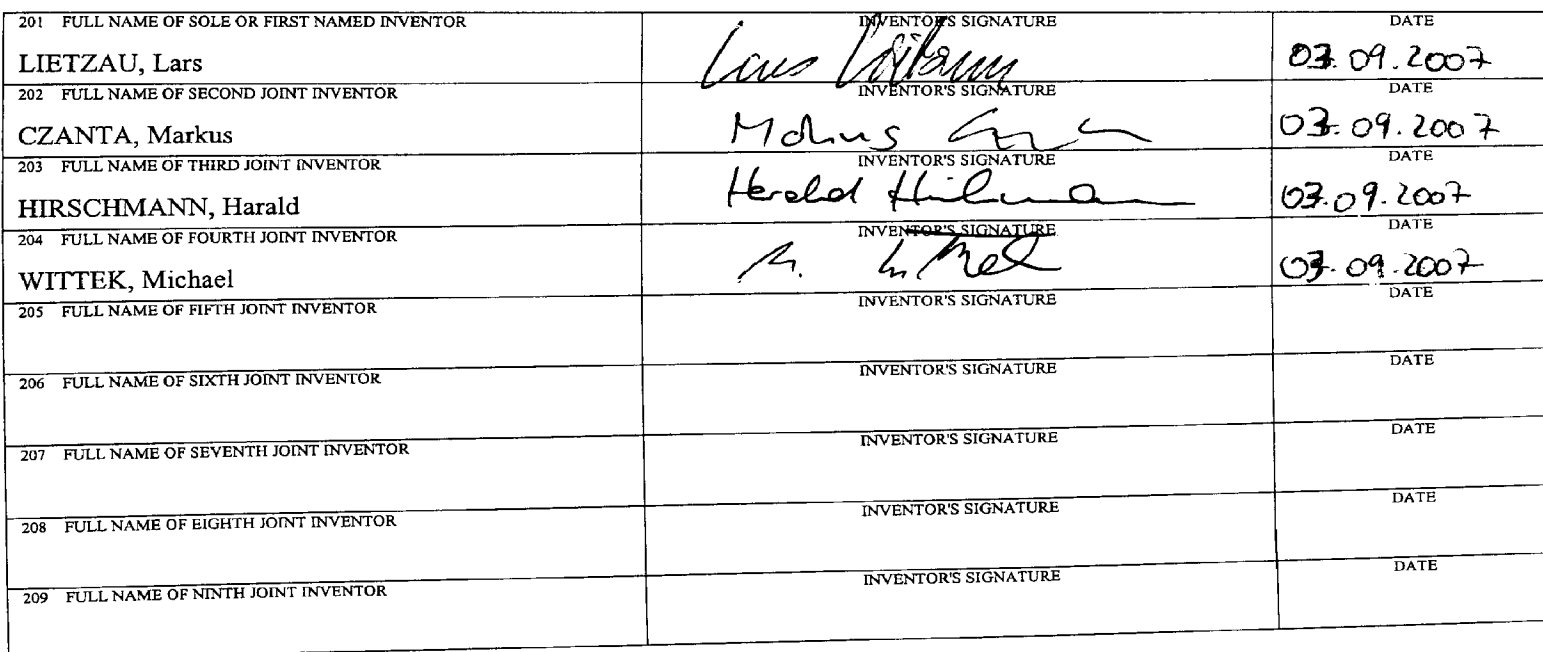 201 FULL NAME OF SOLE OR FIRST NAMED INVENTOR INVENTOR'S SIGNATURE DATE
LIETZAU, Lars Lars 03.09.2007
202 FULL NAME OF SECOND JOINT INVENTOR INVENTOR'S SIGNATURE DATE
CZANTA, Markus Markus 03.09.2007
203 FULL NAME OF THIRD JOINT INVENTOR INVENTOR'S SIGNATURE DATE
HIRSCHMANN, Harald Harald 03.09.2007
204 FULL NAME OF FOURTH JOINT INVENTOR INVENTOR'S SIGNATURE DATE
WITTEK, Michael 03.09.2007
205 FULL NAME OF FIFTH JOINT INVENTOR INVENTOR'S SIGNATURE DATE
206 FULL NAME OF SIXTH JOINT INVENTOR INVENTOR'S SIGNATURE DATE
207 FULL NAME OF SEVENTH JOINT INVENTOR INVENTOR'S SIGNATURE DATE
208 FULL NAME OF EIGHTH JOINT INVENTOR INVENTOR'S SIGNATURE DATE
209 FULL NAME OF NINTH JOINT INVENTOR INVENTOR'S SIGNATURE DATE